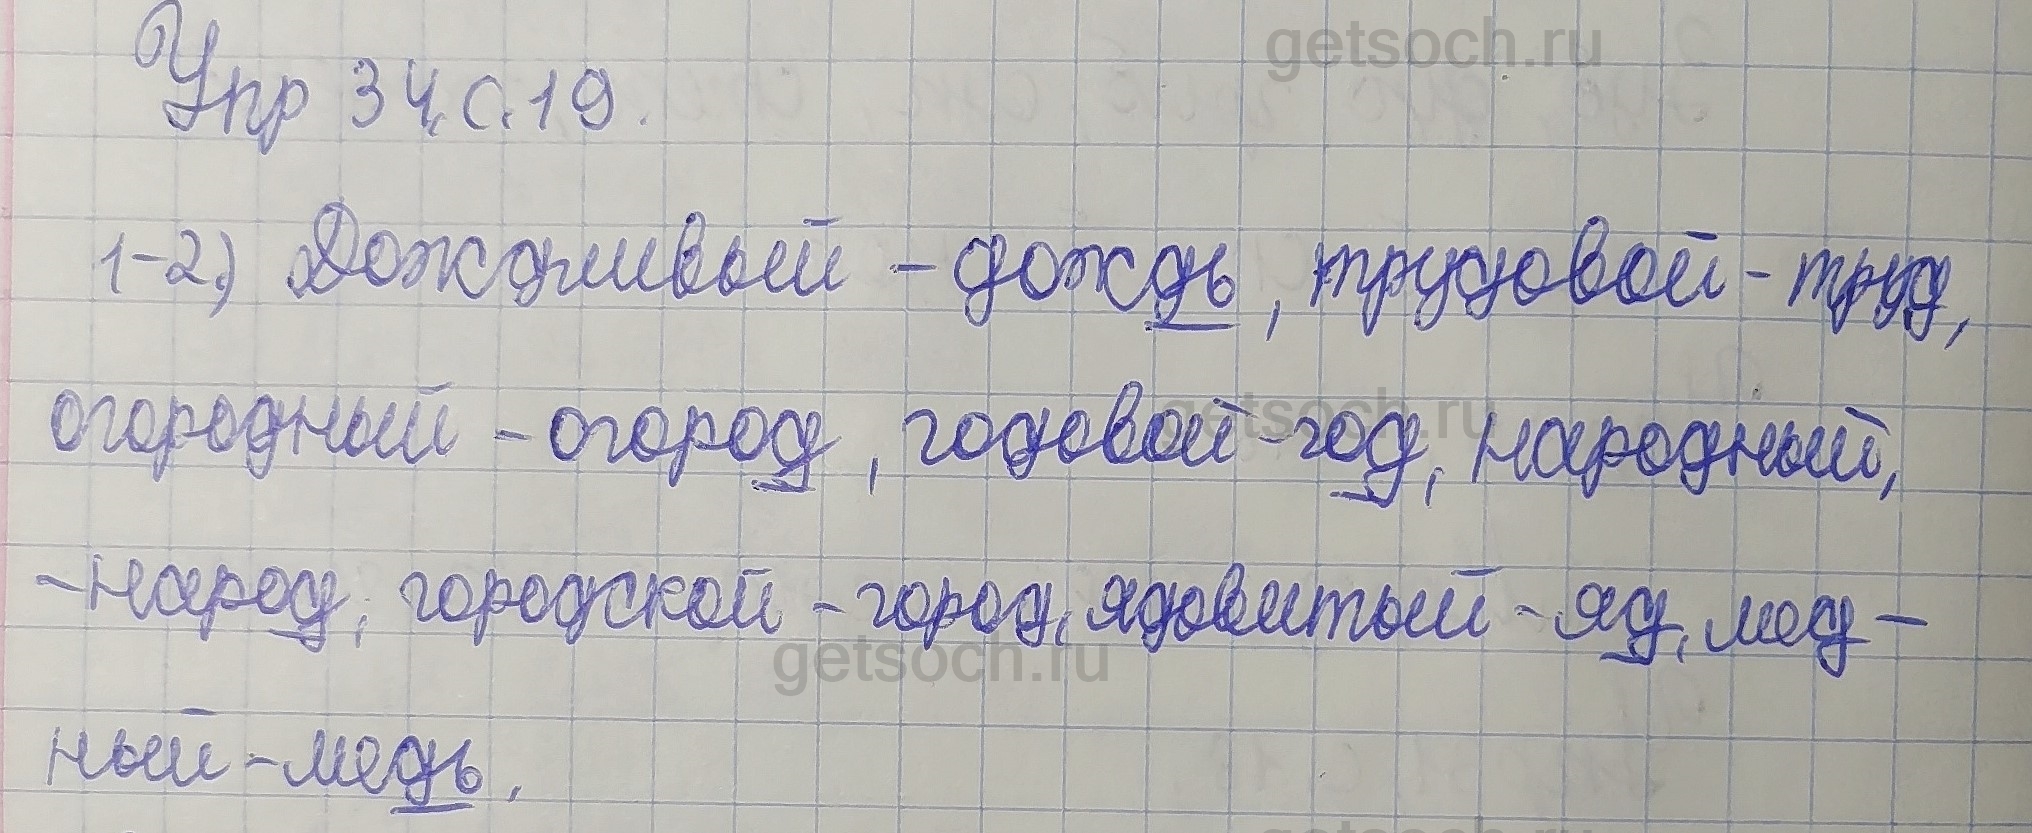 getsoch.ru
Упр 34.с.19.
1-2.) Дождливый - дождь, трудовой - труд,
getsoch.ru
огородный - огород, годовой - год, народный,
- народ, городской - город, ядовитый - яд, мед-
getsoch.ru
ный - медь.
getsoch.ru